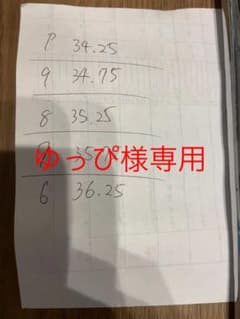 P 34.25
9 34.75
8 35.25
ゆっぴ様専用
6 36.25